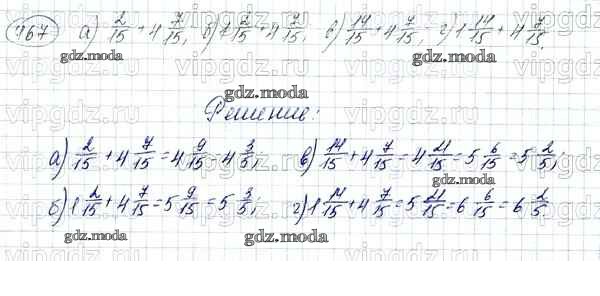 467 а) 2/15 + 4 7/15; б) 1 2/15 + 4 7/15; в) 14/15 + 4 7/15; г) 1 14/15 + 4 7/15.
gdz.moda gdz.moda
Решение:
а) 2/15 + 4 7/15 = 4 9/15 = 4 3/5; в) 14/15 + 4 7/15 = 4 21/15 = 5 6/15 = 5 2/5;
gdz.moda
б) 1 2/15 + 4 7/15 = 5 9/15 = 5 3/5; г) 1 14/15 + 4 7/15 = 5 21/15 = 6 6/15 = 6 2/5.
gdz.moda gdz.moda
vipgdz.ru